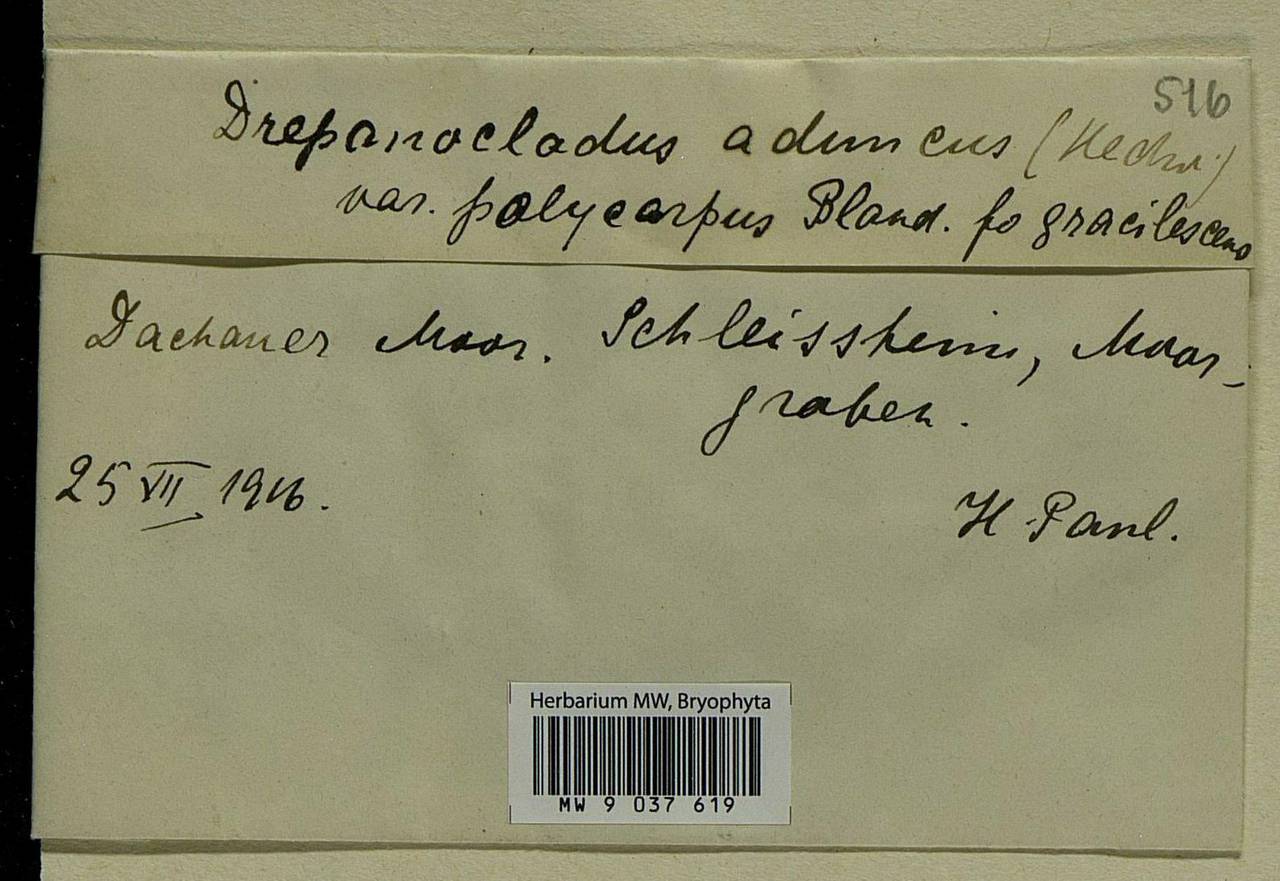 516
Drepanocladus aduncus (Hedw.)
var. polycarpus Bland. fo gracilescens
Dachauer Moor. Schleissheim, Moor-
graben.
25 VII 1916.
H Paul.
Herbarium MW, Bryophyta
MW 9 037 619